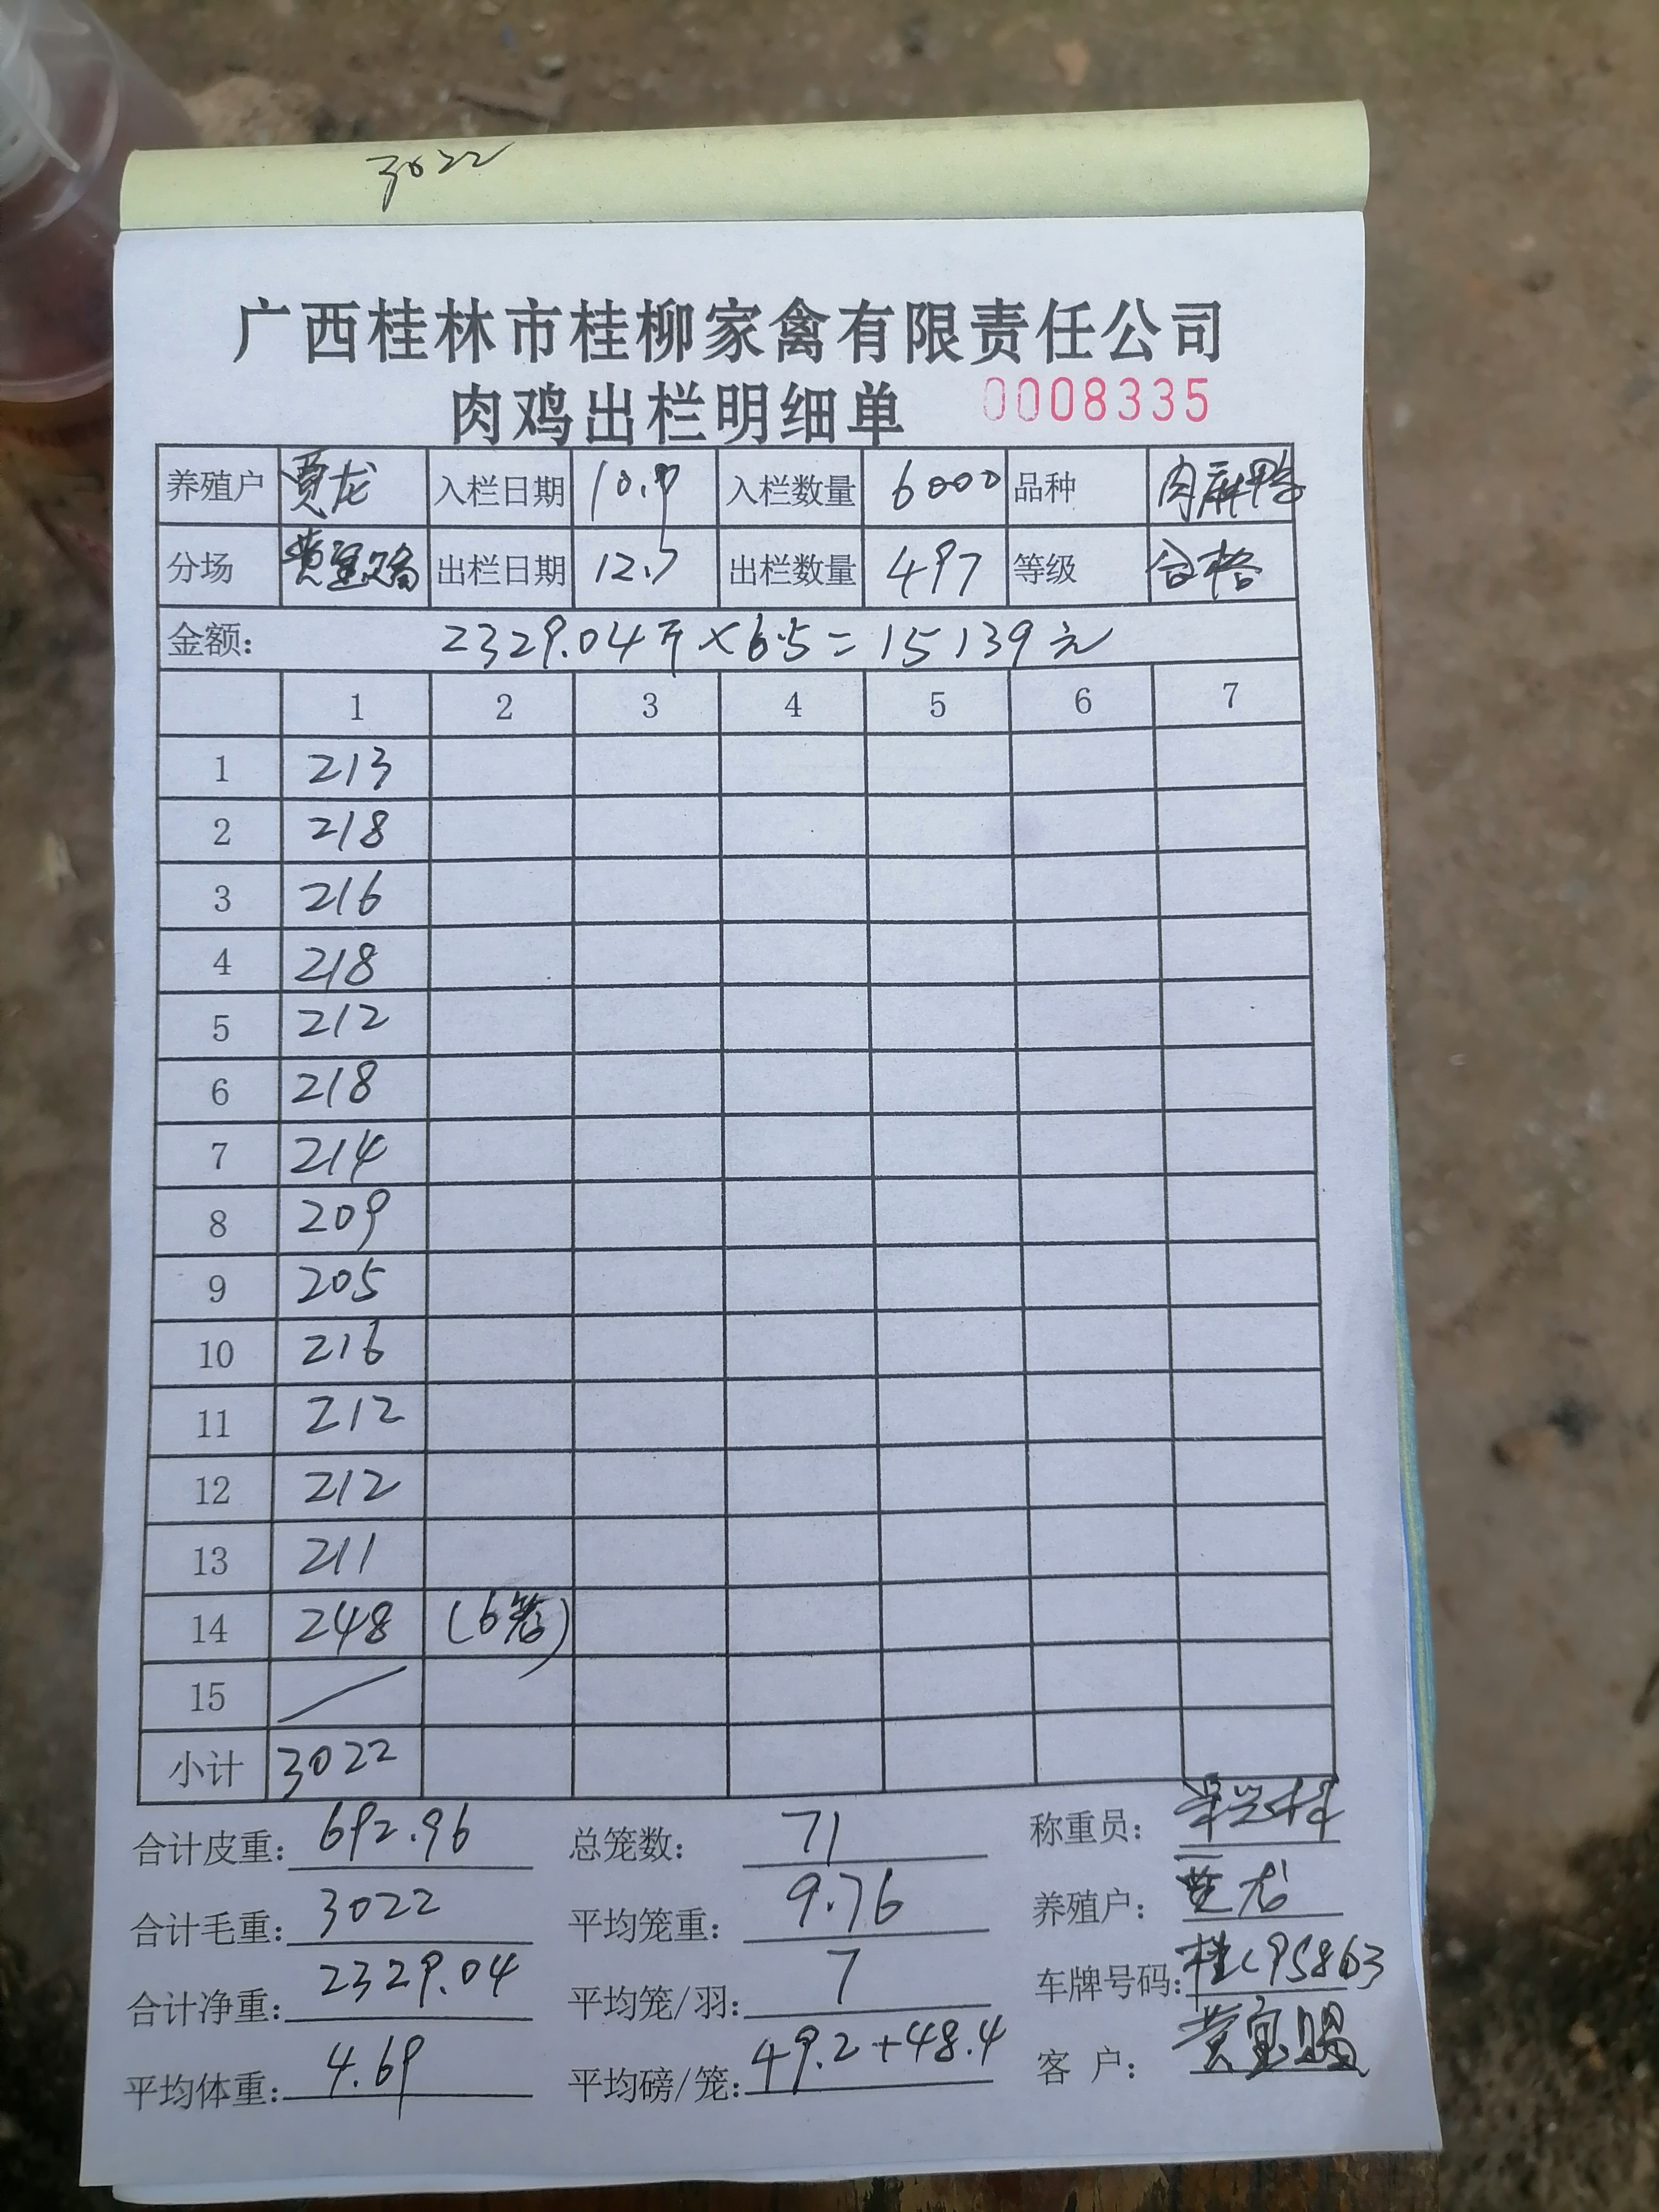 3022
广西桂林市桂柳家禽有限责任公司
肉鸡出栏明细单 0008335
养殖户 贾龙 入栏日期 10.9 入栏数量 6000 品种 肉麻鸭
分场 黄宝赐 出栏日期 12.7 出栏数量 497 等级 合格
金额: 2329.04斤×6.5=15139元
1 2 3 4 5 6 7
1 213
2 218
3 216
4 218
5 212
6 218
7 214
8 209
9 205
10 216
11 212
12 212
13 211
14 248 (6笼)
15
小计 3022
合计皮重: 692.96 总笼数: 71 称重员:
合计毛重: 3022 平均笼重: 9.76 养殖户: 贾龙
合计净重: 2329.04 平均笼/羽: 7 车牌号码: 桂C95863
平均体重: 4.69 平均磅/笼: 49.2+48.4 客 户: 黄宝赐